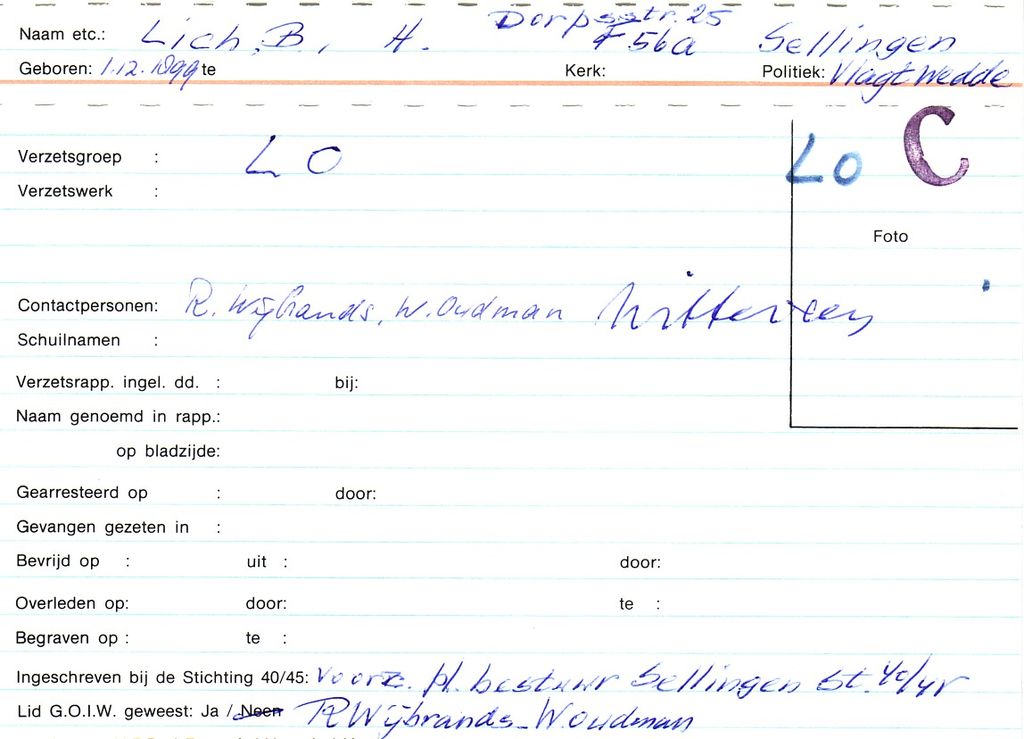 Dorpsstr. 25
Naam etc.: Lich, B, H. F 56a Sellingen
Geboren: 1.12.1899 te Kerk: Politiek: Vlagtwedde
Verzetsgroep : LO LO C
Verzetswerk :
Foto
Contactpersonen: R. Wijbrands, W. Oudman
Schuilnamen :
Verzetsrapp. ingel. dd. : bij:
Naam genoemd in rapp.:
op bladzijde:
Gearresteerd op : door:
Gevangen gezeten in :
Bevrijd op : uit : door:
Overleden op: door: te :
Begraven op : te :
Ingeschreven bij de Stichting 40/45: Voorz. Pl. bestuur Sellingen St. 40/45
Lid G.O.I.W. geweest: Ja / Neen R Wijbrands - W. Oudman